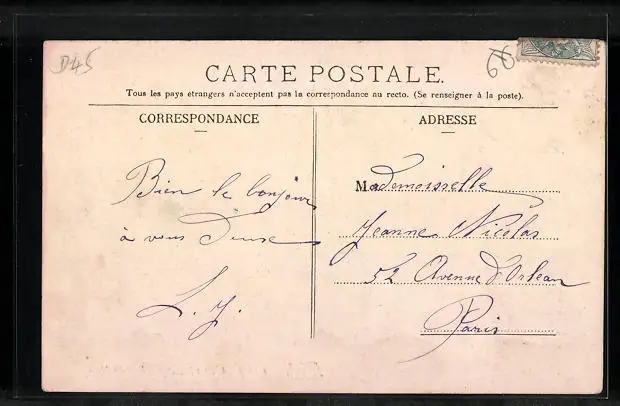 D45
60
CARTE POSTALE.
Tous les pays étrangers n'acceptent pas la correspondance au recto. (Se renseigner à la poste).
CORRESPONDANCE
ADRESSE
Bien le bonjour
à vous
L. J.
Mademoiselle
Jeanne Nicolas
52 Avenue d'Orlean
Paris